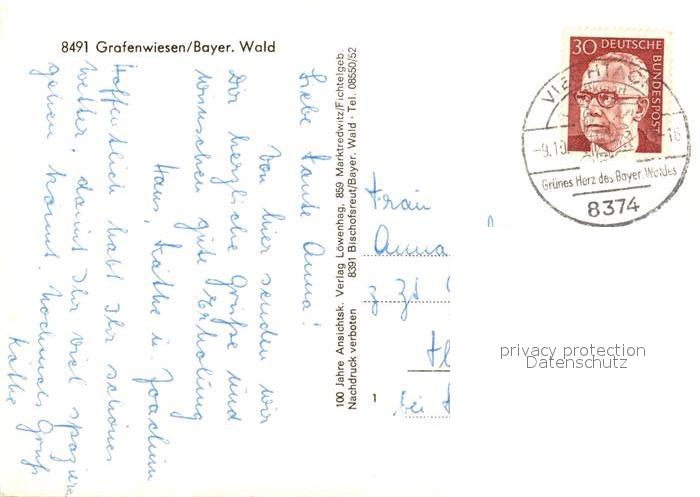 8491 Grafenwiesen/Bayer. Wald
Liebe Tante Anna!
Von hier senden wir
Dir herzliche Grüße und
wünschen gute Erholung
Hans, Käthe u. Joachim
Hoffentlich habt Ihr schönes
Wetter, damit Ihr viel spazieren
gehen könnt. Nochmals Gruß
Käthe
100 Jahre Ansichtsk. Verlag Löwenhag, 859 Marktredwitz/Fichtelgeb.
Nachdruck verboten 8391 Bischofsreut/Bayer. Wald · Tel. 08550/52
30 DEUTSCHE
BUNDESPOST
VIECHT
-9.10.
-16
Grünes Herz des Bayer. Waldes
8374
Frau
Anna
z Zt
bei
1
privacy protection
Datenschutz